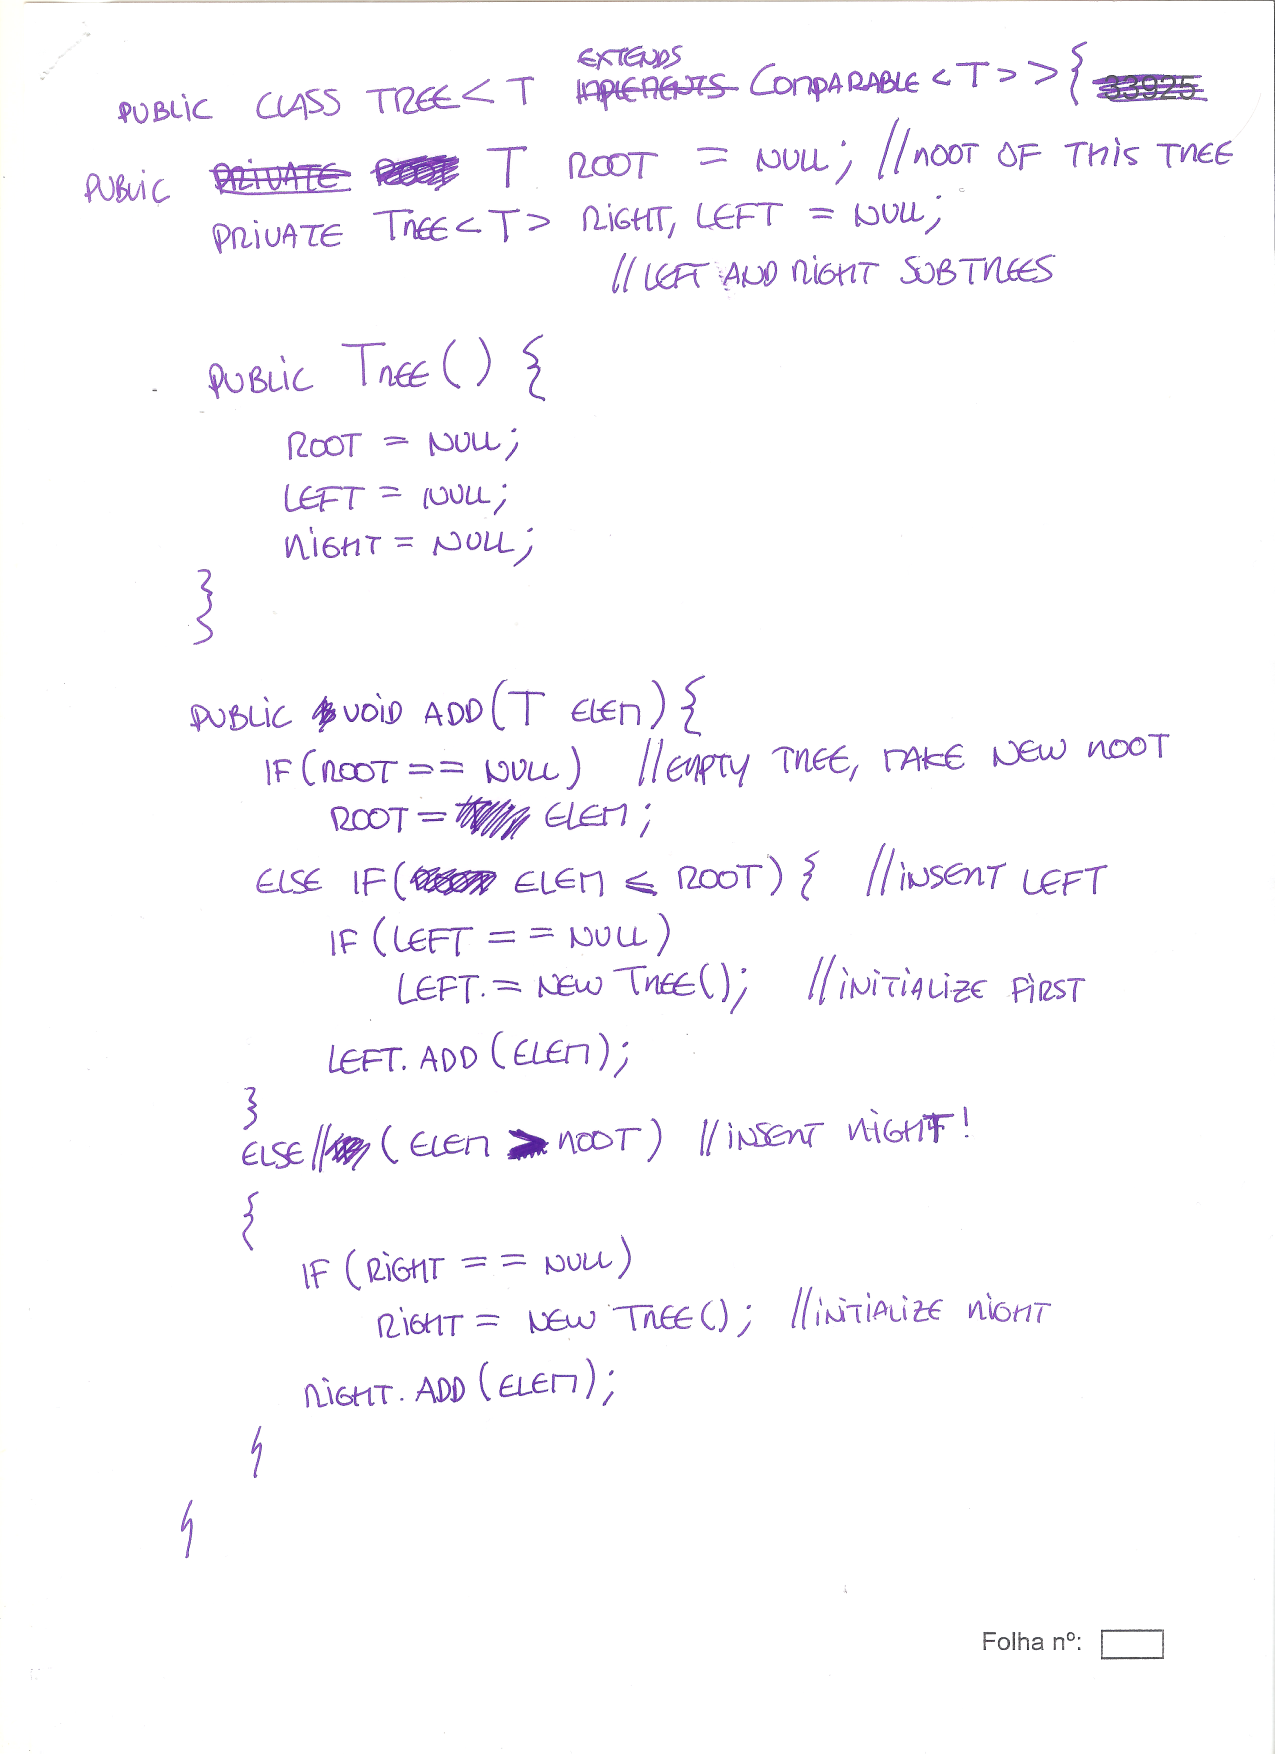 EXTENDS
PUBLIC CLASS TREE<T IMPLEMENTS COMPARABLE<T>>{ 33925
PUBLIC PRIVATE T ROOT = NULL; //ROOT OF THIS TREE
PRIVATE TREE<T> RIGHT, LEFT = NULL;
//LEFT AND RIGHT SUBTREES
PUBLIC TREE() {
ROOT = NULL;
LEFT = NULL;
RIGHT = NULL;
}
PUBLIC VOID ADD(T ELEM) {
IF(ROOT == NULL) //EMPTY TREE, MAKE NEW ROOT
ROOT = ELEM;
ELSE IF( ELEM ≤ ROOT) { //INSERT LEFT
IF (LEFT == NULL)
LEFT = NEW TREE(); //INITIALIZE FIRST
LEFT. ADD (ELEM);
}
ELSE // (ELEM > ROOT) //INSERT RIGHT!
{
IF (RIGHT == NULL)
RIGHT = NEW TREE(); //INITIALIZE RIGHT
RIGHT. ADD (ELEM);
}
}
Folha nº: